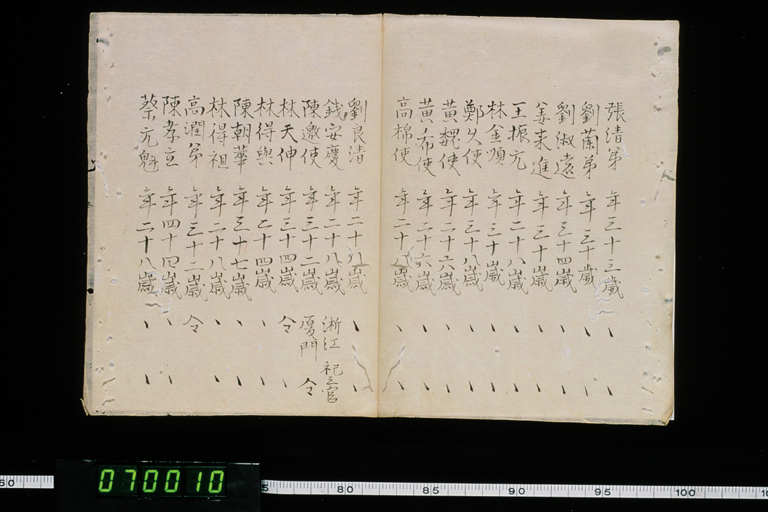 張清弟 年三十三歲 、 、
劉蘭弟 年三十歲 、 、
劉淑遠 年三十四歲 、 、
姜来進 年三十歲 、 、
王振元 年二十八歲 、 、
林金順 年三十歲 、 、
鄭久使 年三十八歲 、 、
黃魏使 年二十六歲 、 、
黃希使 年二十六歲 、 、
高棉使 年二十八歲 、 、
劉良清 年二十八歲 、 、
錢安慶 年二十八歲 浙江 祀三官
陳邀使 年三十二歲 厦門 仝
林天伸 年三十四歲 仝 、
林得興 年二十四歲 、 、
陳朝華 年三十七歲 、 、
林得祖 年二十八歲 、 、
高潤弟 年三十二歲 仝 、
陳孝立 年四十四歲 、 、
蔡元魁 年二十八歲 、 、
070010
80 85 90 95 100